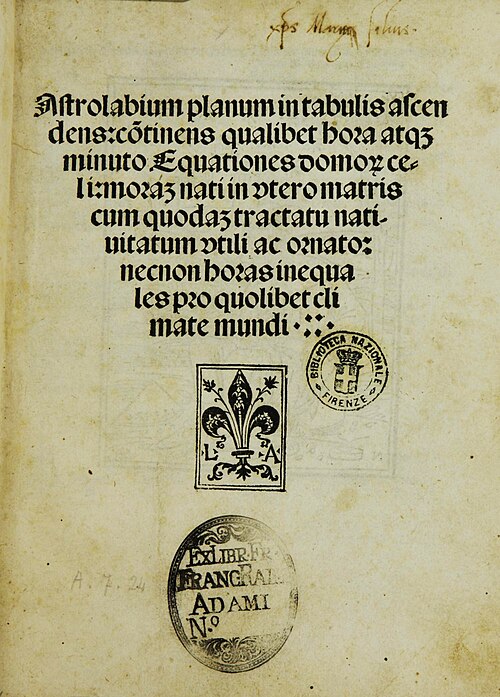 Astrolabium planum in tabulis ascen
dens:cõtinens qualibet hora atqꝫ
minuto Equationes domoꝝ ce-
li:moráꝫ nati in vtero matris
cum quodaꝫ tractatu nati-
uitatum vtili ac ornato:
necnon horas inequa
les pro quolibet cli
mate mundi
BIBLIOTECA NAZIONALE
FIRENZE
L A
EX LIBR. FR.
ADAMI
N.º
A. 7. 24